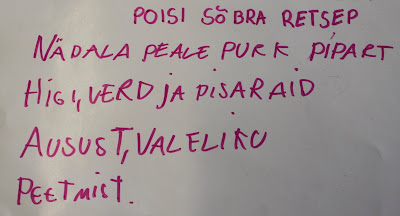 POISI SÕBRA RETSEP
NÄDALA PEALE PURK PIPART
HIGI, VERD JA PISARAID
AUSUST, VALELIKU
PEETMIST.